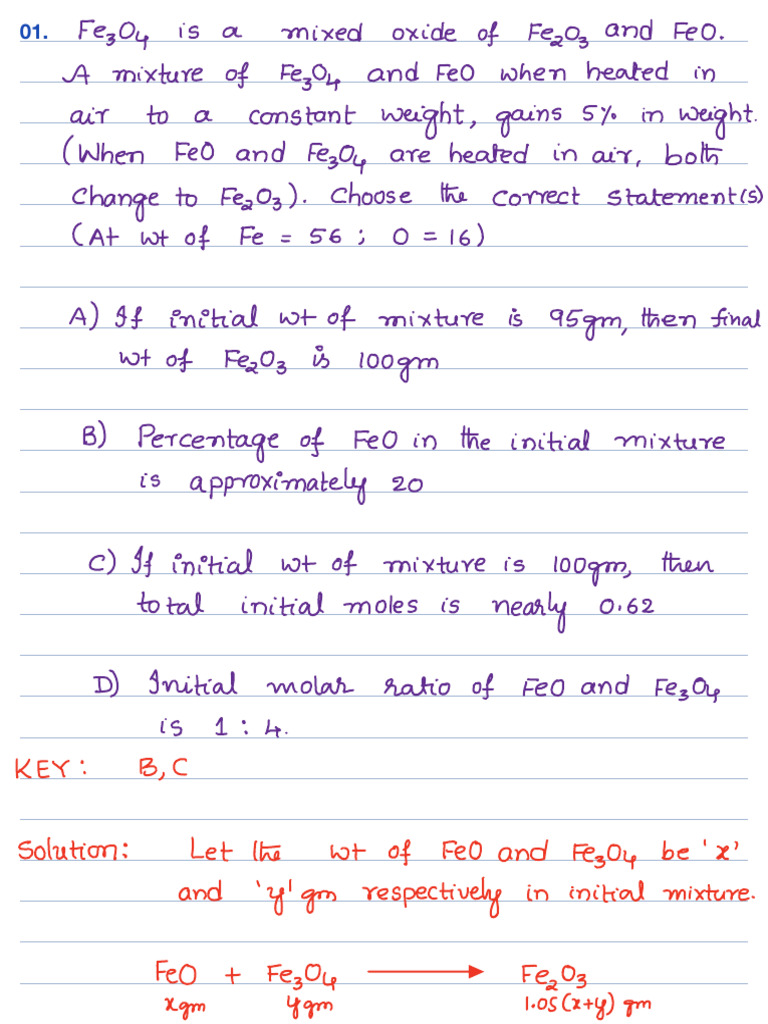 01. Fe₃O₄ is a mixed oxide of Fe₂O₃ and FeO.
A mixture of Fe₃O₄ and FeO when heated in
air to a constant weight, gains 5% in weight.
(When FeO and Fe₃O₄ are heated in air, both
change to Fe₂O₃). Choose the correct statement(s)
(At wt of Fe = 56 ; O = 16)
A) If initial wt of mixture is 95gm, then final
wt of Fe₂O₃ is 100gm
B) Percentage of FeO in the initial mixture
is approximately 20
C) If initial wt of mixture is 100gm, then
total initial moles is nearly 0.62
D) Initial molar ratio of FeO and Fe₃O₄
is 1 : 4.
KEY : B, C
Solution: Let the wt of FeO and Fe₃O₄ be 'x'
and 'y' gm respectively in initial mixture.
FeO + Fe₃O₄ ⟶ Fe₂O₃
xgm ygm 1.05(x+y) gm